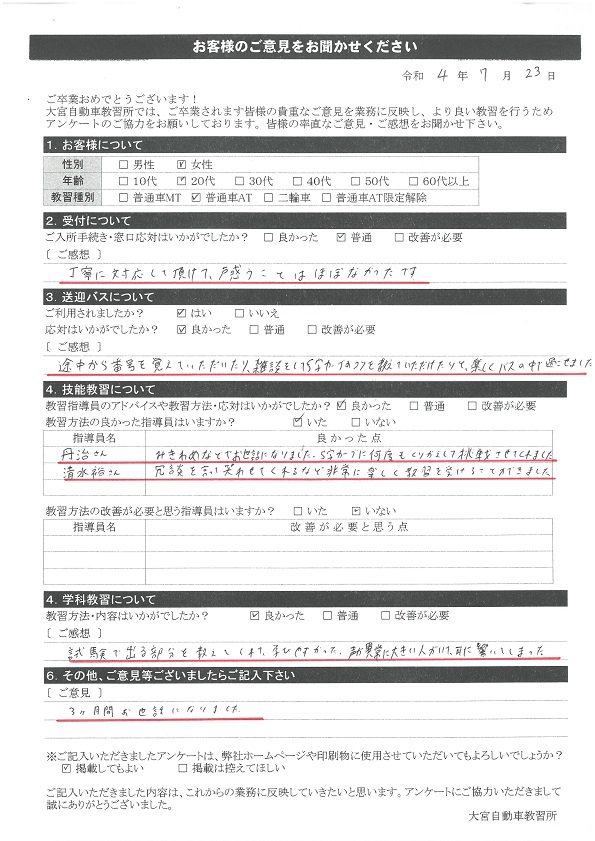 お客様のご意見をお聞かせください
令和 4 年 7 月 23 日
ご卒業おめでとうございます！
大宮自動車教習所では、ご卒業されます皆様の貴重なご意見を業務に反映し、より良い教習を行うため
アンケートのご協力をお願いしております。皆様の率直なご意見・ご感想をお聞かせ下さい。
1. お客様について
性別 □男性 ☑女性
年齢 □10代 ☑20代 □30代 □40代 □50代 □60代以上
教習種別 □普通車MT ☑普通車AT □二輪車 □普通車AT限定解除
2. 受付について
ご入所手続き・窓口応対はいかがでしたか？ □良かった ☑普通 □改善が必要
[ ご感想 ]
丁寧に対応して頂けて、戸惑うことはほぼなかったです
3. 送迎バスについて
ご利用されましたか？ ☑はい □いいえ
応対はいかがでしたか？ ☑良かった □普通 □改善が必要
[ ご感想 ]
途中から番号を覚えていただいたり、雑談をしてS字クランクのコツを教えていただけたりと、楽しくバスの中で過ごせました
4. 技能教習について
教習指導員のアドバイスや教習方法・応対はいかがでしたか？ ☑良かった □普通 □改善が必要
教習方法の良かった指導員はいますか？ ☑いた □いない
指導員名 良かった点
丹治さん みきわめなどでお世話になりました。S字クランクに何度もくりかえして挑戦させてくれました
清水裕さん 冗談を言って笑わせてくれるなど非常に楽しく教習を受けることができました
教習方法の改善が必要と思う指導員はいますか？ □いた ☑いない
指導員名 改善が必要と思う点
4. 学科教習について
教習方法・内容はいかがでしたか？ ☑良かった □普通 □改善が必要
[ ご感想 ]
試験で出る部分を教えてくれて、学びやすかった。声が異常に大きい人がいて、耳に驚いてしまった
6. その他、ご意見等ございましたらご記入下さい
[ ご意見 ]
3ヶ月間お世話になりました
※ご記入いただきましたアンケートは、弊社ホームページや印刷物に使用させていただいてもよろしいでしょうか？
☑掲載してもよい □掲載は控えてほしい
ご記入いただきました内容は、これからの業務に反映していきたいと思います。アンケートにご協力いただきまして
誠にありがとうございました。
大宮自動車教習所